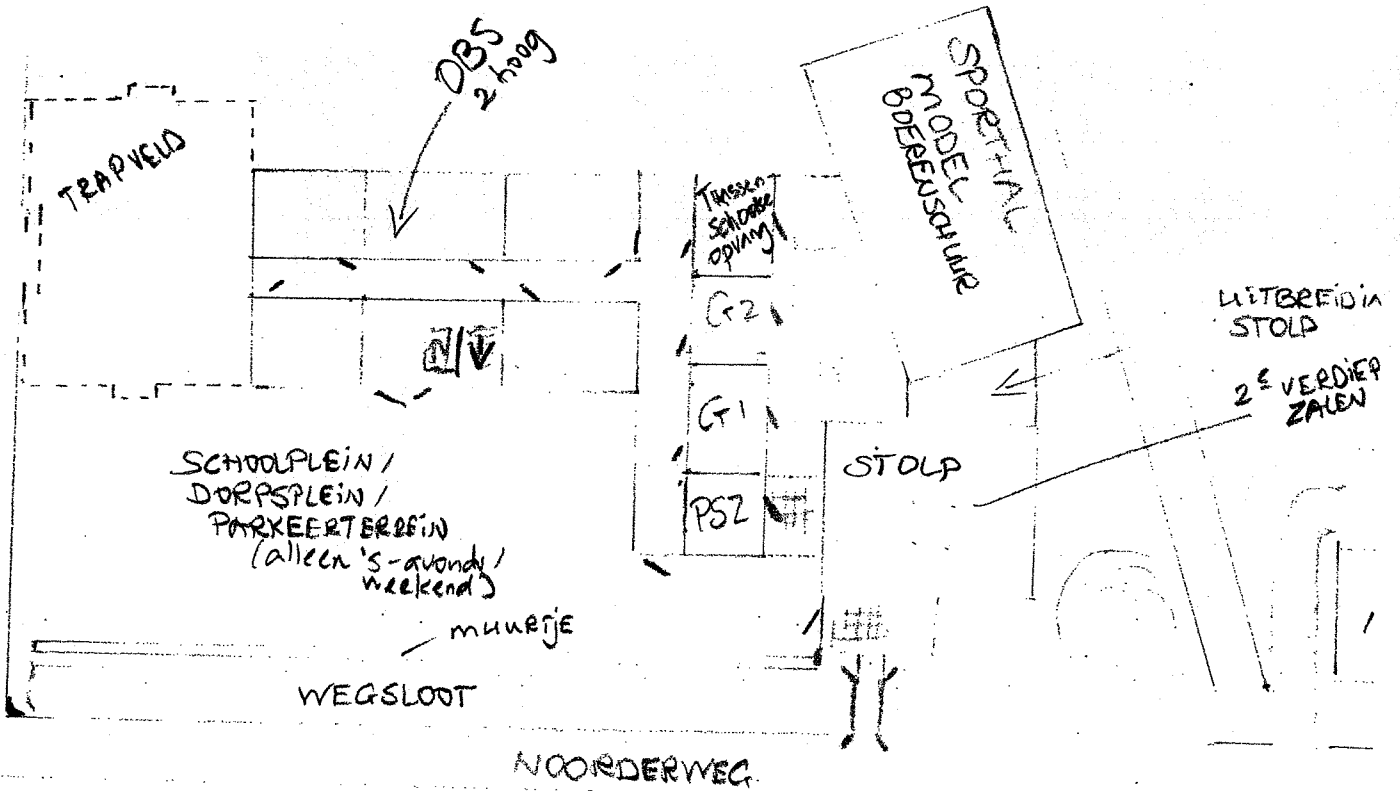 DBS
2 hoog
TRAPVELD
SPORTHAL
MODEL
BOERENSCHUUR
Tussen
Schoolse
opvang
G2
G1
PSZ
UITBREIDIN
STOLP
2E VERDIEP
ZALEN
STOLP
SCHOOLPLEIN /
DORPSPLEIN /
PARKEERTERREIN
(alleen 's-avonds /
weekend)
muurtje
WEGSLOOT
NOORDERWEG